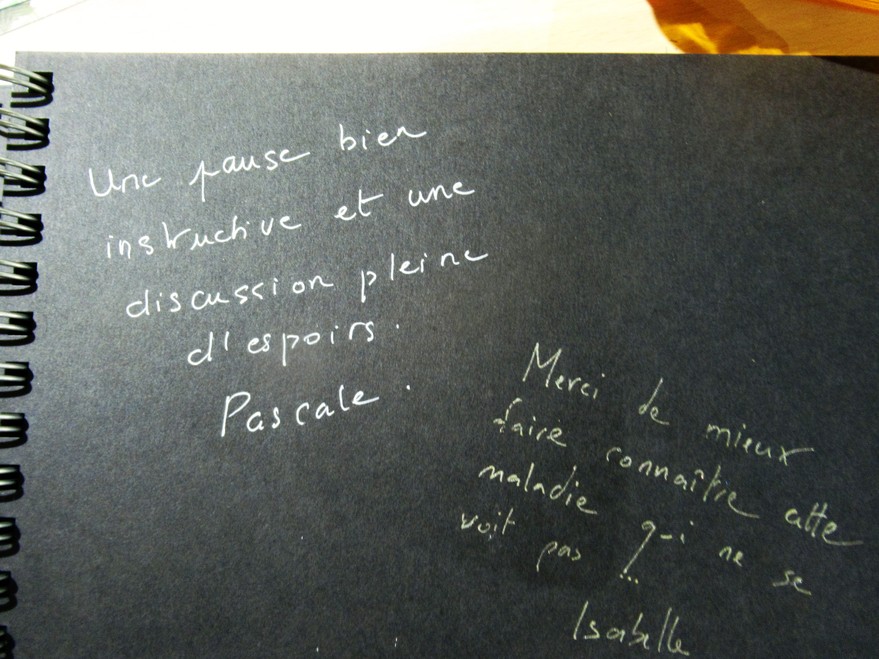 Une pause bien
instructive et une
discussion pleine
d'espoirs.
Pascale.
Merci de mieux
faire connaître cette
maladie qui ne se
voit pas !...
Isabelle